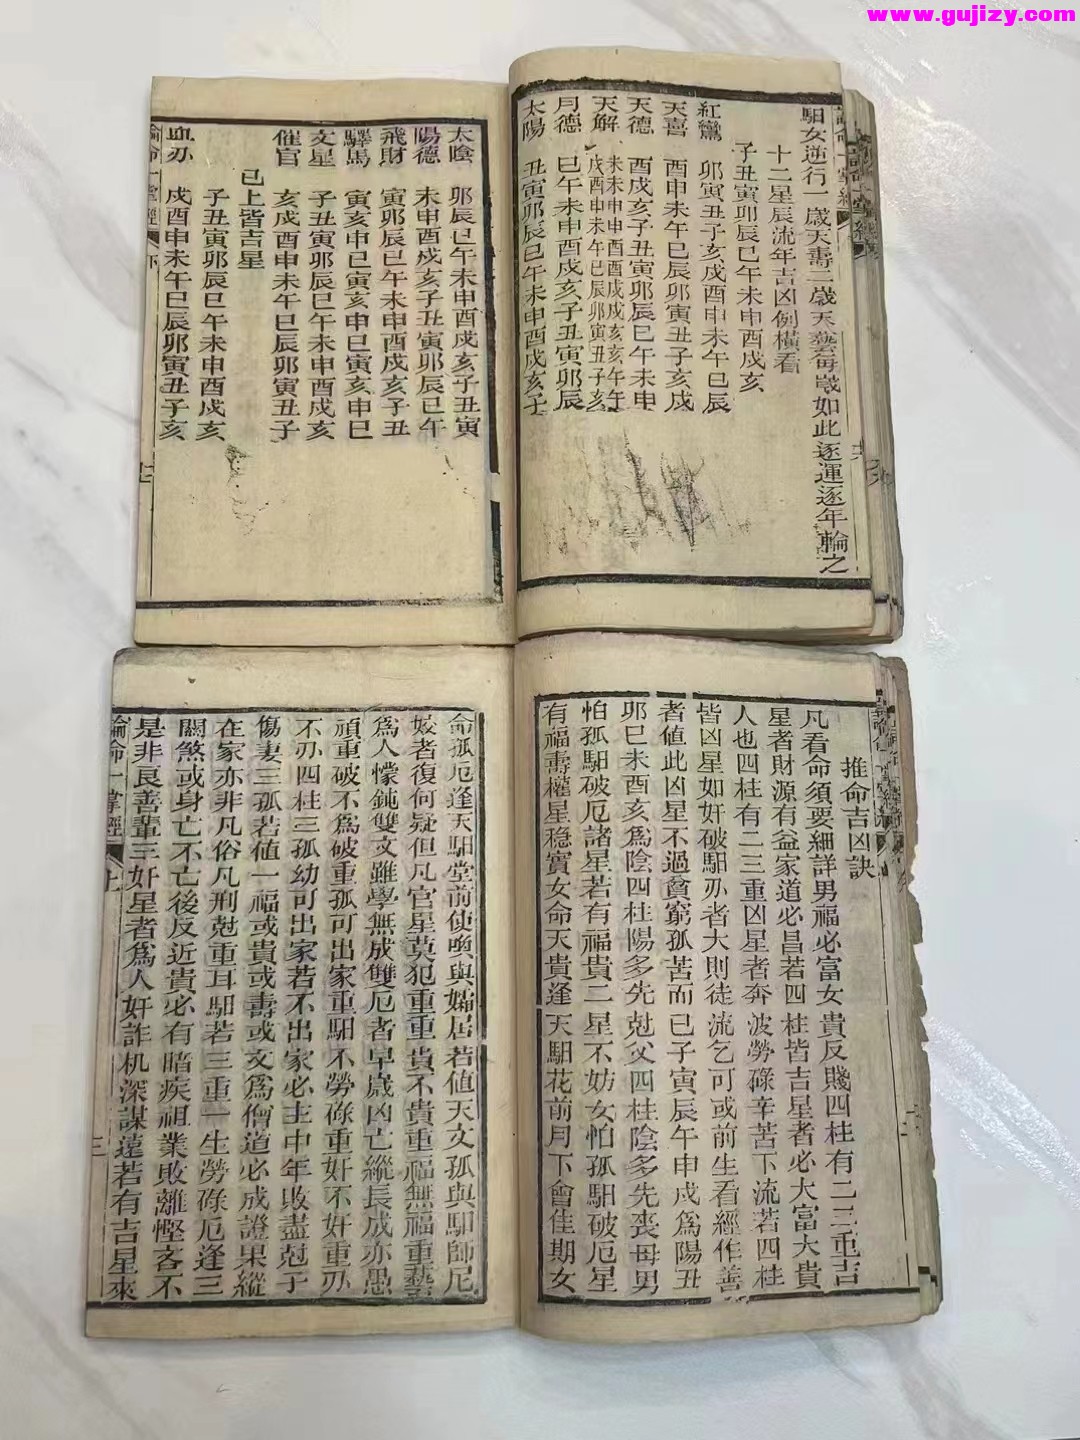 www.gujizy.com
馹女逆行一歲天壽二歲天藝每歲如此逐運逐年輪之
十二星辰流年吉凶例橫看
子丑寅卯辰巳午未申酉戌亥
紅鸞 卯寅丑子亥戌酉申未午巳辰
天喜 酉申未午巳辰卯寅丑子亥戌
天德 酉戌亥子丑寅卯辰巳午未申
天解 戌戌酉申未午巳辰卯寅丑子亥
月德 巳午未申酉戌亥子丑寅卯辰
太陽 丑寅卯辰巳午未申酉戌亥子
太陰 卯辰巳午未申酉戌亥子丑寅
陽德 未申酉戌亥子丑寅卯辰巳午
飛財 寅卯辰巳午未申酉戌亥子丑
驛馬 寅亥申巳寅亥申巳寅亥申巳
文星 子丑寅卯辰巳午未申酉戌亥
催官 亥戌酉申未午巳辰卯寅丑子
已上皆吉星
子丑寅卯辰巳午未申酉戌亥
血刃 戌酉申未午巳辰卯寅丑子亥
論命一掌經 下
推命吉凶訣
凡看命須要細詳男福必富女貴反賤四柱有二三重吉
星者財源有益家道必昌若四柱皆吉星者必大富大貴
人也四柱有二三重凶星者奔波勞碌辛苦下流若四柱
皆凶星如奸破馹刃者大則徒流乞可或前生看經作善
者值此凶星不過貧窮孤苦而已子寅辰午申戌為陽丑
卯巳未酉亥為陰四柱陽多先尅父四柱陰多先喪母男
怕孤馹破厄諸星若有福貴二星不妨女怕孤馹破厄星
有福壽權星稳實女命天貴逢天馹花前月下會佳期女
命孤厄逢天馹堂前使喚與孀居若值天文孤與馹師尼
妓者復何疑但凡官星莫犯重重貴不貴重福無福重藝
為人懞鈍雙文雖學無成雙厄者早歲凶亡縱長成亦愚
頑重破不為破重孤可出家重馹不勞碌重奸不奸重刃
不刃四柱三孤幼可出家若不出家必主中年敗盡尅子
傷妻三孤若值一福或貴或壽或文為僧道必成證果縱
在家亦非凡俗凡刑尅重耳馹若三重一生勞碌厄逢三
關煞或身亡不亡後反近貴必有暗疾祖業敗離慳吝不
是非良善輩三奸星者為人奸詐机深謀遠若有吉星來
論命一掌經 上 三